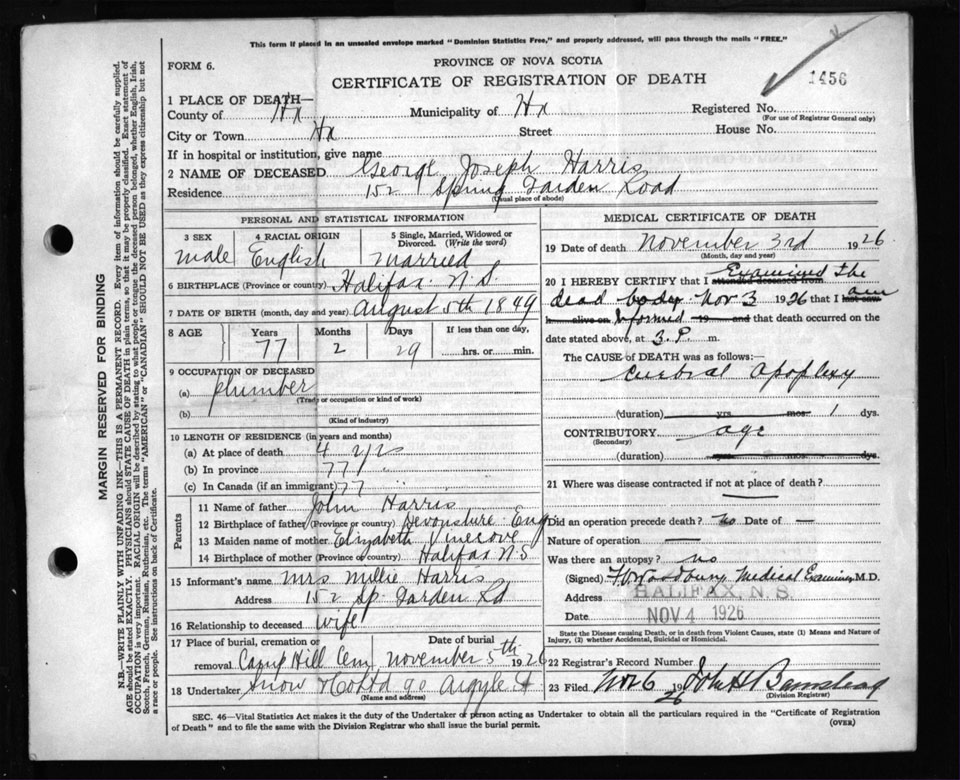 This form if placed in an unsealed envelope marked "Dominion Statistics Free," and properly addressed, will pass through the mails "FREE."
FORM 6.
PROVINCE OF NOVA SCOTIA
CERTIFICATE OF REGISTRATION OF DEATH
1456
1 PLACE OF DEATH—
County of Hx Municipality of Hx Registered No.
(For use of Registrar General only)
City or Town Hx Street House No.
If in hospital or institution, give name
2 NAME OF DECEASED George Joseph Harris
Residence 152 Spring Garden Road
(Usual place of abode)
PERSONAL AND STATISTICAL INFORMATION
3 SEX male
4 RACIAL ORIGIN English
5 Single, Married, Widowed or Divorced. (Write the word) married
6 BIRTHPLACE (Province or country) Halifax N.S
7 DATE OF BIRTH (month, day and year) August 5th 1849
8 AGE Years 77 Months 2 Days 29 If less than one day, hrs. or min.
9 OCCUPATION OF DECEASED
(a) plumber
(Trade or occupation or kind of work)
(b)
(Kind of industry)
10 LENGTH OF RESIDENCE (in years and months)
(a) At place of death 4 yrs
(b) In province 77 "
(c) In Canada (if an immigrant) 77 "
Parents
11 Name of father John Harris
12 Birthplace of father (Province or country) Devonshire Eng
13 Maiden name of mother Elizabeth Vinecove
14 Birthplace of mother (Province or country) Halifax N.S
15 Informant's name Mrs Millie Harris
Address 152 Sp. Garden Rd
16 Relationship to deceased wife
17 Place of burial, cremation or removal Camp Hill Cem Date of burial November 5th 1926
18 Undertaker Snow & Co Ltd 90 Argyle St
(Name and address)
MEDICAL CERTIFICATE OF DEATH
19 Date of death November 3rd 1926
(Month, day and year)
20 I HEREBY CERTIFY that I attended deceased from Examined the
dead body Nov 3 1926 that I last saw am
h alive on Informed 19 and that death occurred on
date stated above, at 3. P. m.
The CAUSE of DEATH was as follows:
Cerebral Apoplexy
(duration) yrs. mos. 1 dys.
CONTRIBUTORY age
(Secondary)
(duration) yrs. mos. dys.
21 Where was disease contracted if not at place of death?
—
Did an operation precede death? no Date of —
Nature of operation —
Was there an autopsy? no
(Signed) Woodbury Medical Examiner M.D.
Address HALIFAX, N. S.
Date NOV 4 1926
State the Disease causing Death, or in death from Violent Causes, state (1) Means and Nature of
Injury, (2) whether Accidental, Suicidal or Homicidal.
22 Registrar's Record Number
23 Filed Nov 6 1926 John H Barnstead
(Division Registrar)
SEC. 46—Vital Statistics Act makes it the duty of the Undertaker or person acting as Undertaker to obtain all the particulars required in the "Certificate of Registration
of Death" and to file the same with the Division Registrar who shall issue the burial permit.
(OVER)
MARGIN RESERVED FOR BINDING
N.B.—WRITE PLAINLY, WITH UNFADING INK—THIS IS A PERMANENT RECORD. Every item of information should be carefully supplied.
AGE should be stated EXACTLY. PHYSICIANS should STATE CAUSE OF DEATH in plain terms, so that it may be properly classified. Exact statement of
OCCUPATION is very important. RACIAL ORIGIN will be described by stating to what people or tongue the deceased person belonged, whether English, Irish,
Scotch, French, German, Russian, Ruthenian, etc. The terms "AMERICAN" or "CANADIAN" SHOULD NOT BE USED as they express citizenship but not
a race or people. See instructions on back of Certificate.